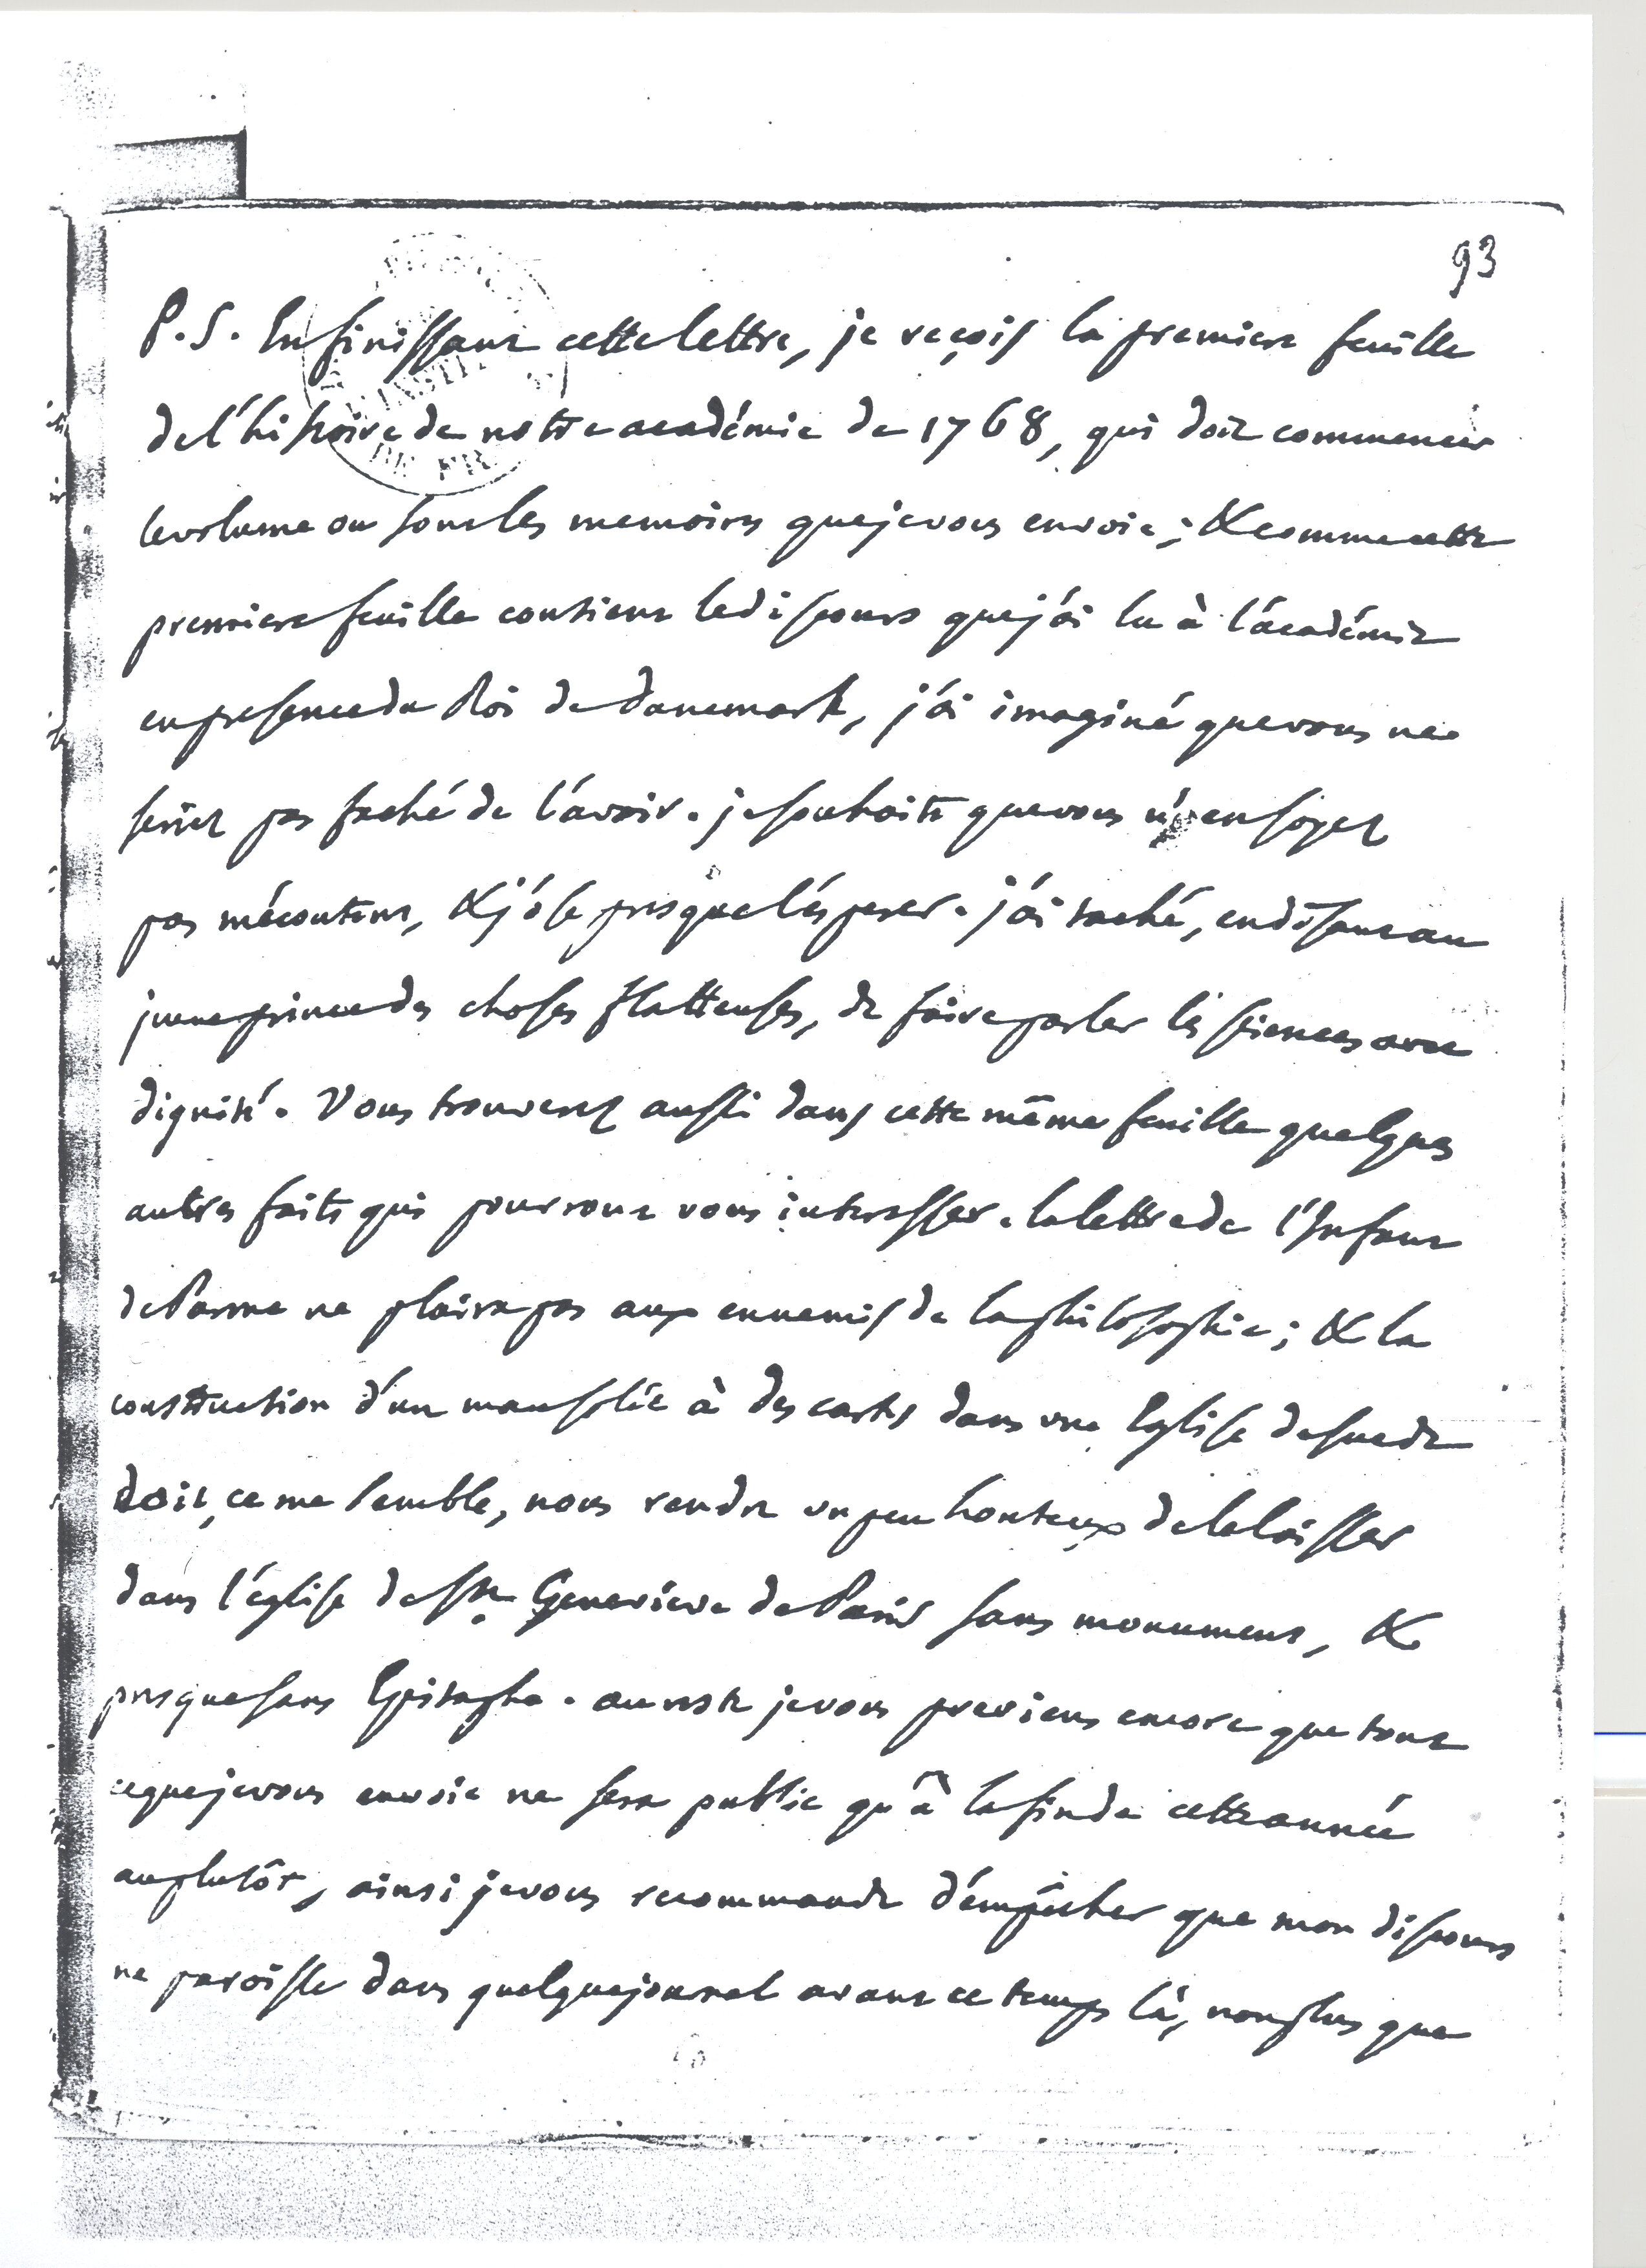 93
P.S. En finissant cette lettre, je reçois la premiere feuille
de l'histoire de notre académie de 1768, qui doit commencer
le volume ou sont les memoires que je vous envoie; & comme cette
premiere feuille contient le discours que j'ai lu à l'académie
en presence du Roi de Danemark, j'ai imaginé que vous ne
seriez pas faché de l'avoir. je souhaite que vous n'en soyez
pas mécontent, & j'ose presque l'esperer. j'ai taché, en disant au
jeune prince des choses flatteuses, de faire parler les sciences avec
dignité. Vous trouverez aussi dans cette même feuille quelques
autres faits qui pourront vous interesser. la lettre de l'Infant
de Parme ne plaira pas aux ennemis de la philosophie; & la
construction d'un mausolée à Descartes dans une Eglise de Suede
doit, ce me semble, nous rendre un peu honteux de le laisser
dans l'église de Ste. Genevieve de Paris sans monument, &
presque sans Epitaphe. au reste je vous previens encore que tout
ce que je vous envoie ne sera public qu'à la fin de cette année
au plutôt, ainsi je vous recommande d'empêcher que mon discours
ne paroisse dans quelque journal avant ce temps là, non plus que
INSTIT
DE FR